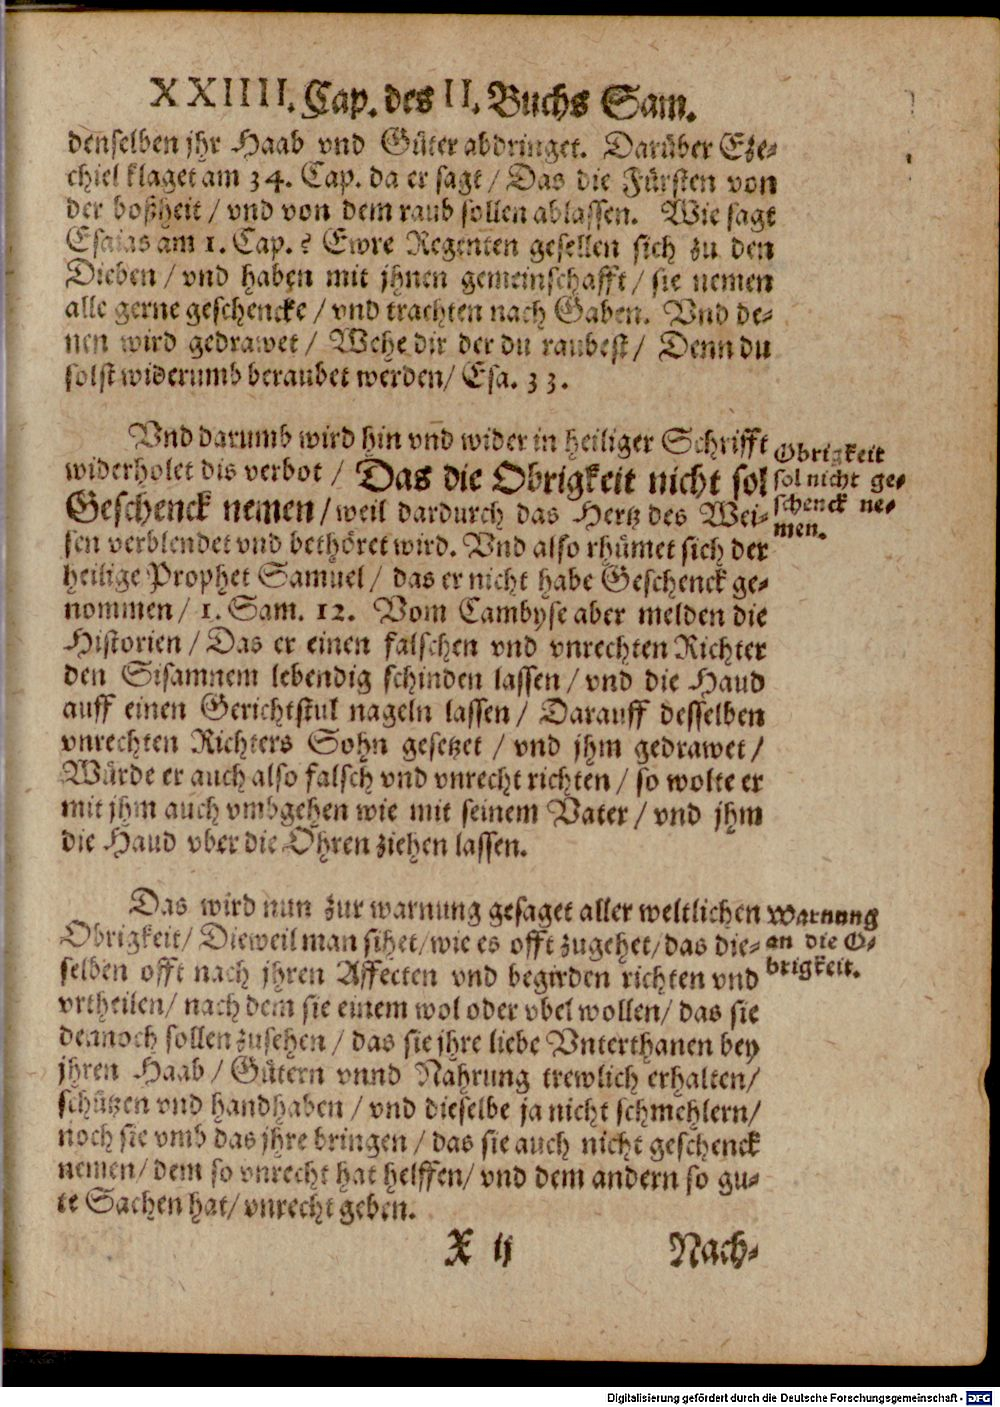 XXIIII. Cap. des II. Buchs Sam.
denselben jhr Haab vnd Güter abdringet. Darüber Eze-
chiel klaget am 34. Cap. da er sagt / Das die Fürsten von
der boßheit / vnd von dem raub sollen ablassen. Wie sagt
Esaias am 1. Cap. ? Ewre Regenten gesellen sich zu den
Dieben / vnd haben mit jhnen gemeinschafft / sie nemen
alle gerne geschencke / vnd trachten nach Gaben. Vnd de-
nen wird gedrawet / Wehe dir der du raubest / Denn du
solst widerumb beraubet werden / Esa. 33.
Vnd darumb wird hin vnd wider in heiliger Schrifft
widerholet dis verbot / Das die Obrigkeit nicht sol
Geschenck nemen / weil dardurch das Hertz des Wei-
sen verblendet vnd bethöret wird. Vnd also rhümet sich der
heilige Prophet Samuel / das er nicht habe Geschenck ge-
nommen / 1. Sam. 12. Vom Cambyse aber melden die
Historien / Das er einen falschen vnd vnrechten Richter
den Sisamnem lebendig schinden lassen / vnd die Haud
auff einen Gerichtstul nageln lassen / Darauff desselben
vnrechten Richters Sohn gesetzet / vnd jhm gedrawet /
Würde er auch also falsch vnd vnrecht richten / so wolte er
mit jhm auch vmbgehen wie mit seinem Vater / vnd jhm
die Haud vber die Ohren ziehen lassen.
Obrigkeit
sol nicht ge-
schenck ne-
men.
Das wird nun zur warnung gesaget aller weltlichen
Obrigkeit / Dieweil man sihet / wie es offt zugehet / das die-
selben offt nach jhren Affecten vnd begirden richten vnd
vrtheilen / nach dem sie einem wol oder vbel wollen / das sie
dennoch sollen zusehen / das sie jhre liebe Vnterthanen bey
jhren Haab / Gütern vnnd Nahrung trewlich erhalten /
schützen vnd handhaben / vnd dieselbe ja nicht schmehlern /
noch sie vmb das jhre bringen / das sie auch nicht geschenck
nemen / dem so vnrecht hat helffen / vnd dem andern so gu-
te Sachen hat / vnrecht geben.
Warnung
an die O-
brigkeit.
X ij Nach-
Digitalisierung gefördert durch die Deutsche Forschungsgemeinschaft - DFG